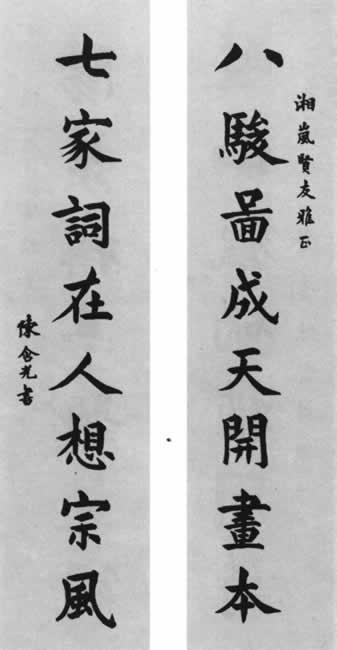 湘嵐賢友雅正
八駿啚成天開畫本
七家詞在人想宗風
陳含光書